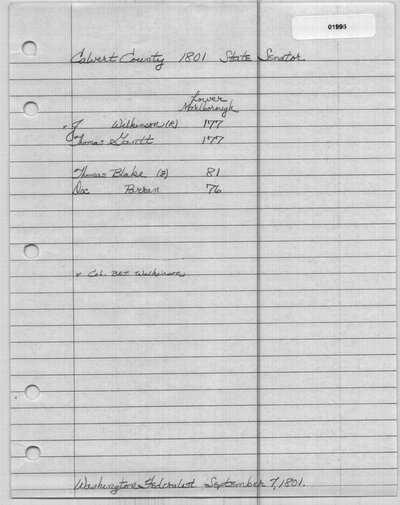 01995
Calvert County 1801 State Senator
Lower
Marlborough
v J Wilkinson (R) 177
Thomas Gantt 177
Thomas Blake (F) 81
Dr. 76
v Col. Wilkinson
Washington Federalist September 7, 1801.